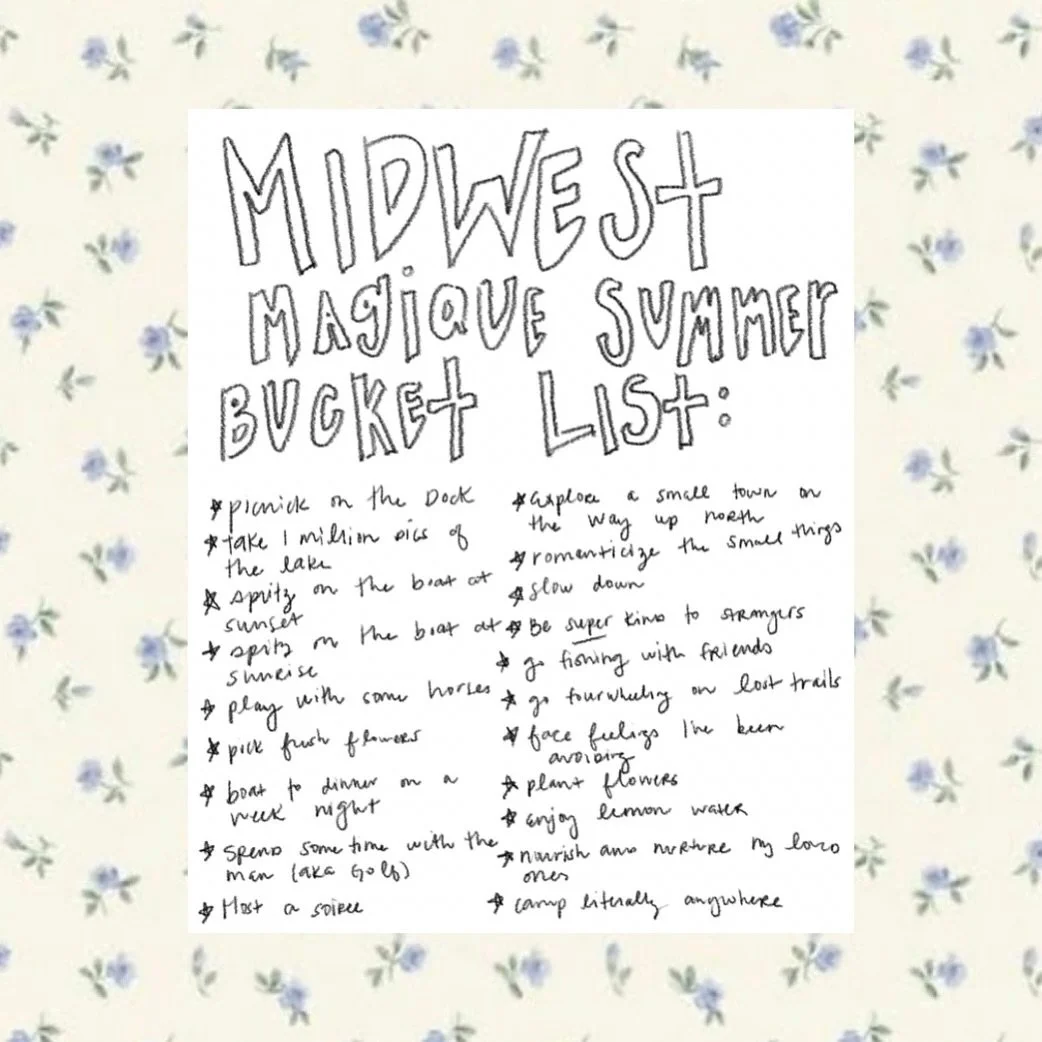 MIDWEST
MAGiQUE SUMMER
BUCKET LIST:
★ picnick on the Dock
★ take 1 million pics of
the lake
★ spritz on the boat at
sunset
★ spritz on the boat at
sunrise
★ play with some horses
★ pick fresh flowers
★ boat to dinner on a
week night
★ spend some time with the
men (aka Golf)
★ Host a soiree
★ explore a small town on
the way up north
★ romanticize the small things
★ slow down
★ Be super kind to strangers
★ go fishing with friends
★ go fourwheeling on lost trails
★ face feelings I've been
avoiding
★ plant flowers
★ enjoy lemon water
★ nourish and nurture my loved
ones
★ camp literally anywhere